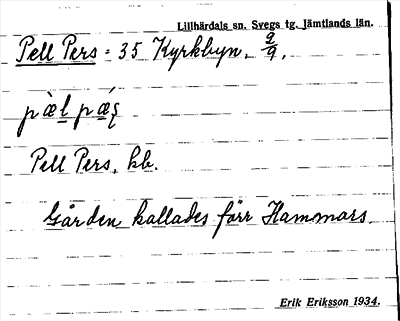 Lillhärdals sn. Svegs tg. Jämtlands län.
Pell Pers = 35 Kyrkbyn, 2/9.
Pell Pers, hb.
Gården kallades förr Hammars.
Erik Eriksson 1934.